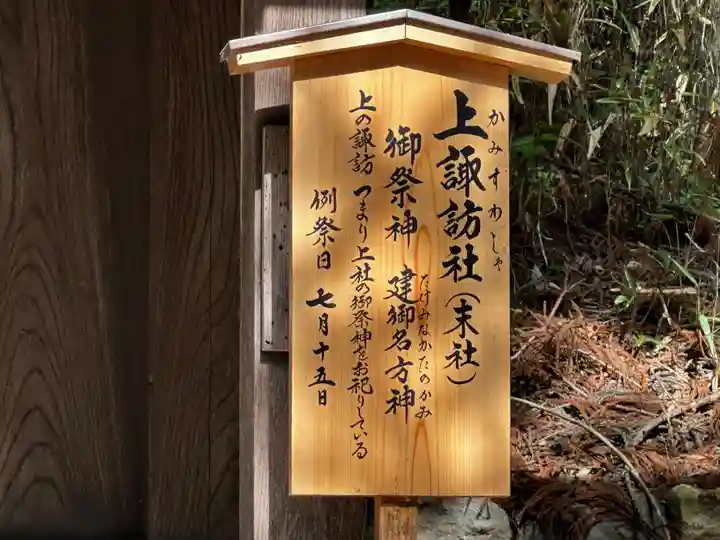 かみすわしゃ
上諏訪社(末社)
御祭神 建御名方神
たけみなかたのかみ
上の諏訪 つまり上社の御祭神をお祀りしている
例祭日 七月十五日